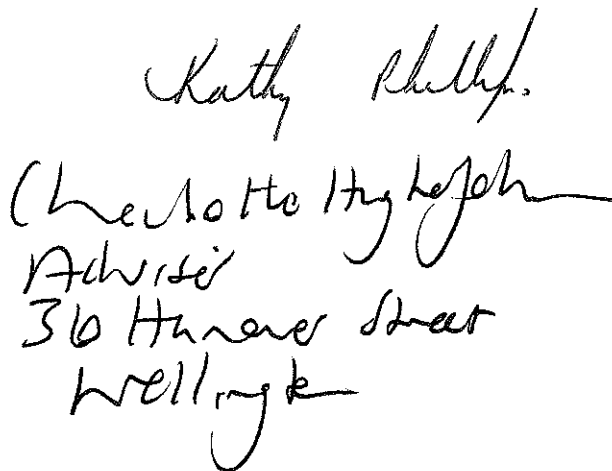 Kathy Phillips.
Charlotte Hughes John
Adviser
36 Hanover Street
Wellington